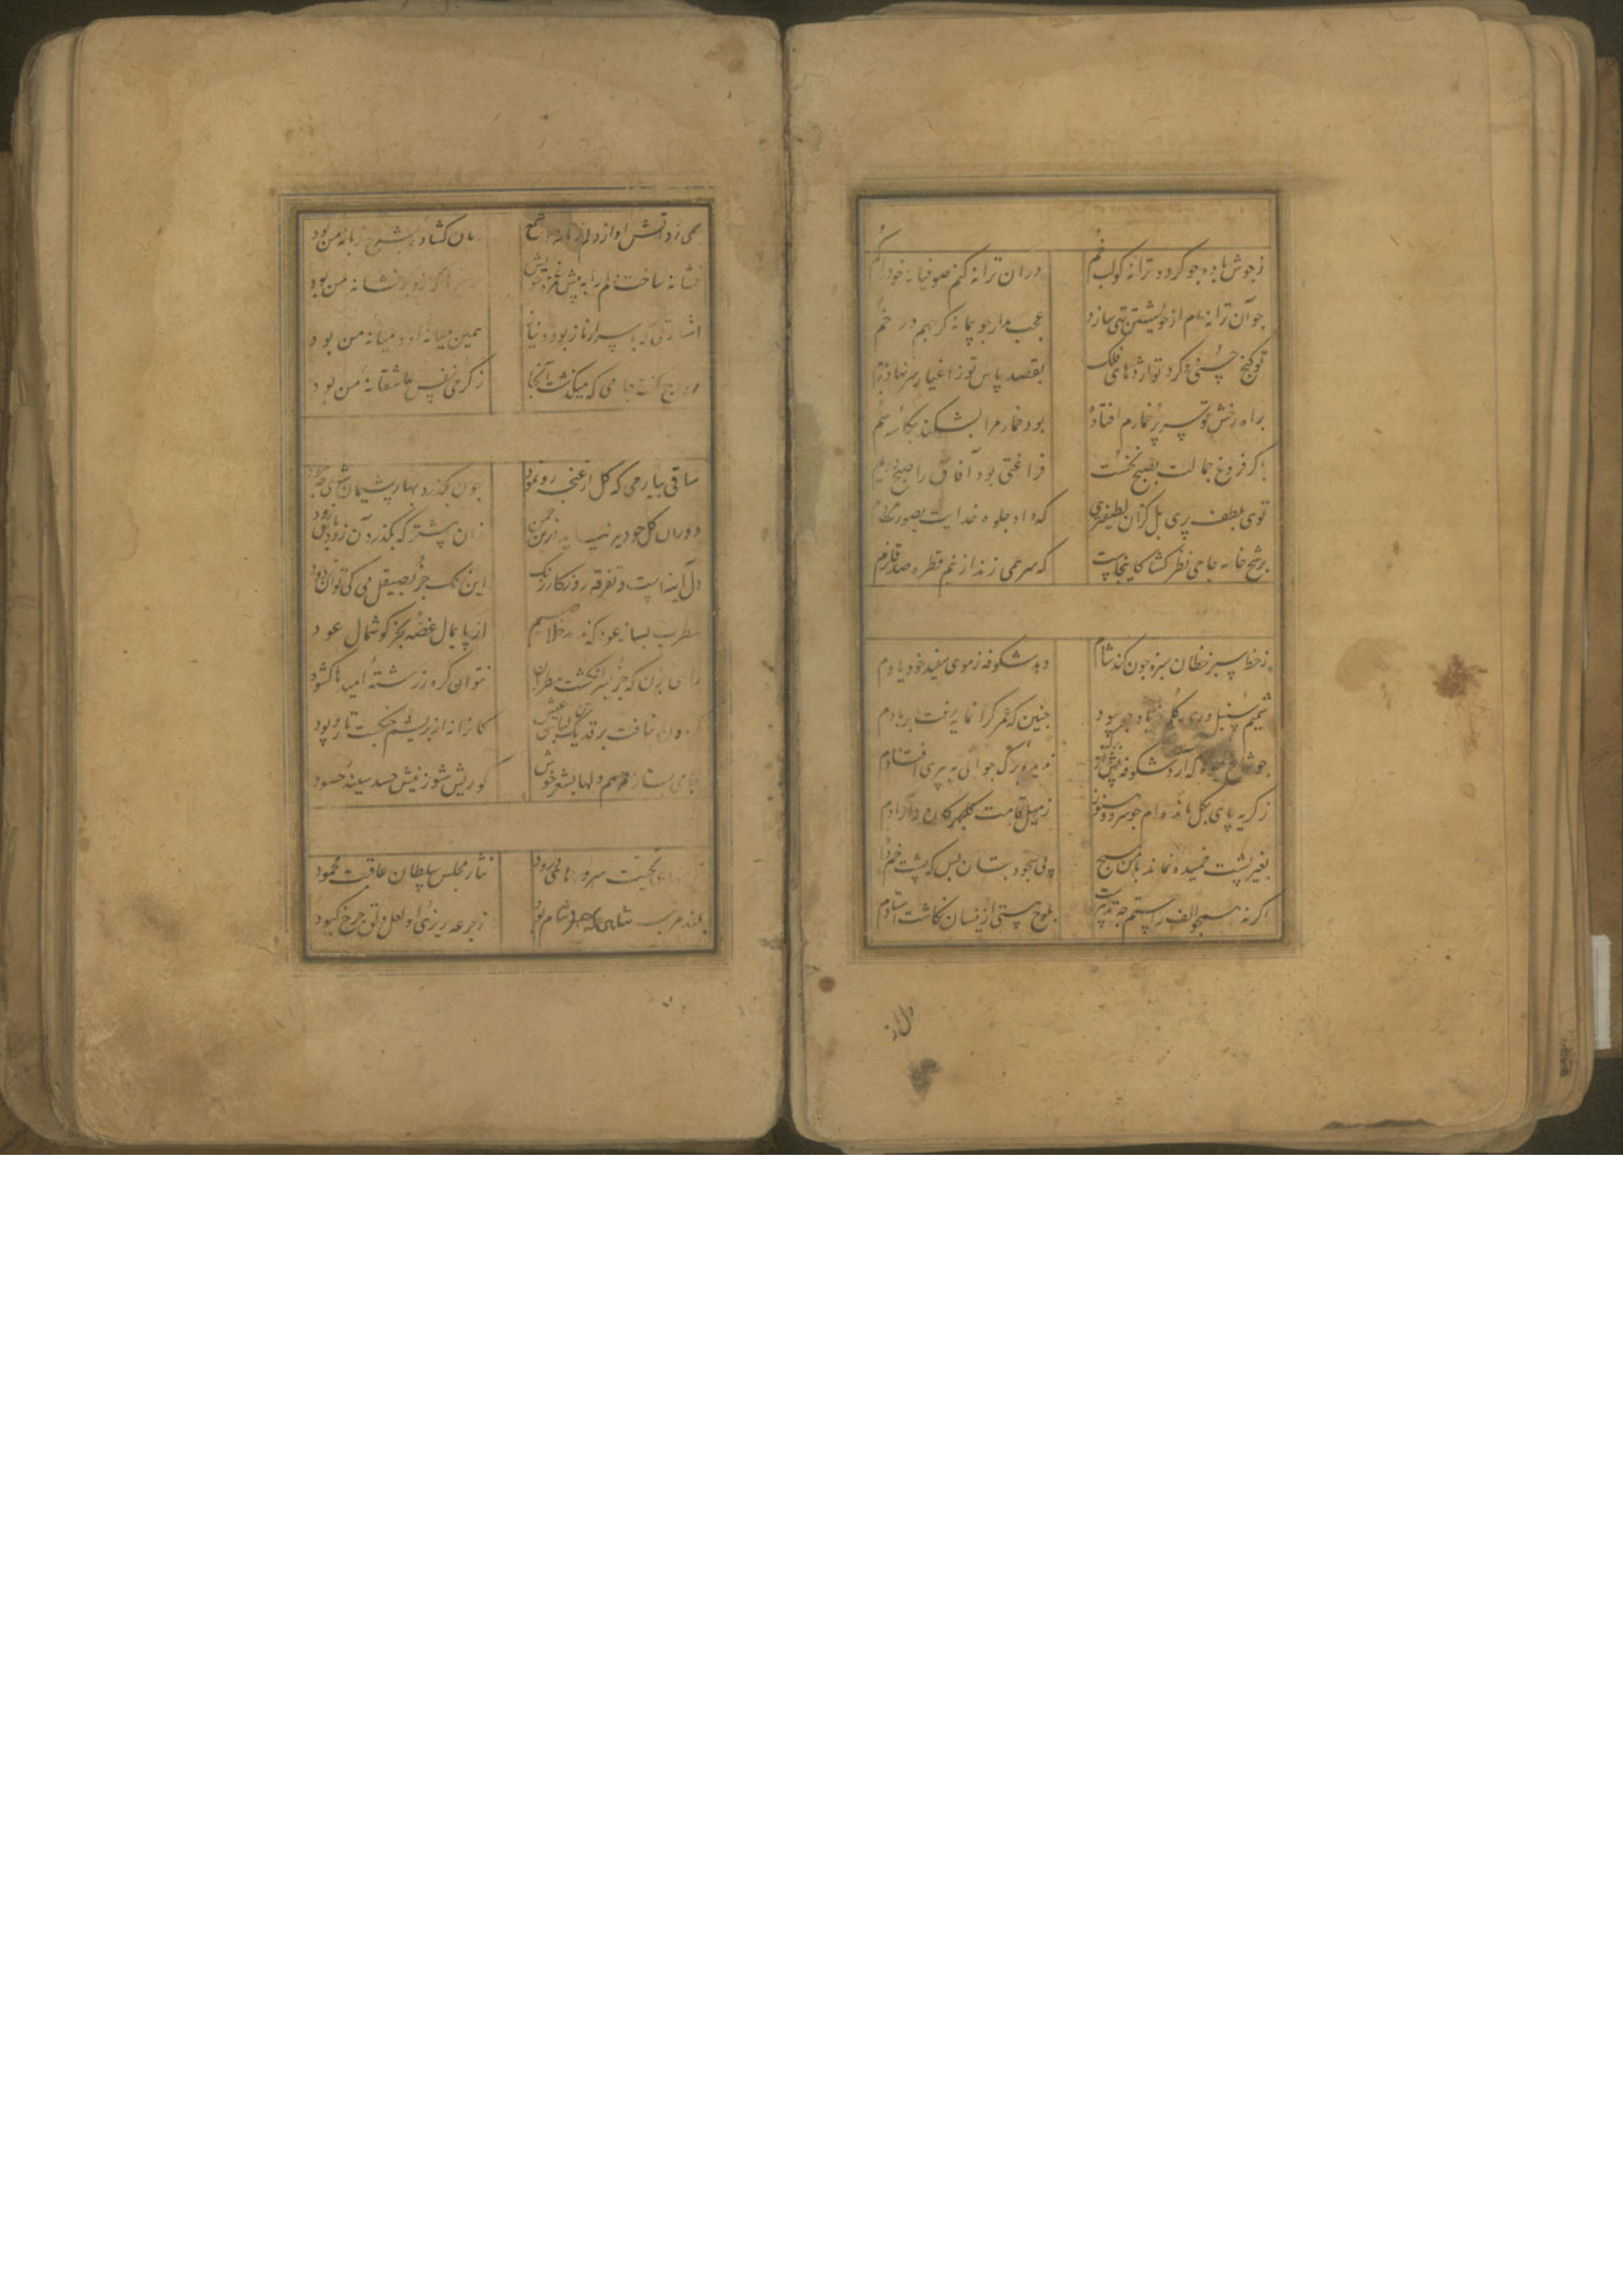 ز جوش باده جو کردد ترانه کو لب خم
دران ترانه کنم صوفیانه خود را کم
جو آن ترانه ام از خویشتن تهی سازد
عجب مدار جو پیمانه کر جهم در خم
تو کنج حسنی و کرد تو اژدهای فلک
بقصد پاس تو ز اغیار سر نهاده بدم
براه رخش تو سر پر خمارم افتاده
بود خمار مرا بشکند بکاسه سم
کر فروغ جمالت بصبح نخست
فراغتی بود آفاق را ز صبح دوم
توی بلطف پری بل کزان لطیفتری
که داد جلوه خدایت بصورت مردم
برشح خامه جامی نظر کشا کاینجاست
که سر همی زند از نم قطره صد قلزم
ز خط سبز خطان سبزه جون کند شادم
دهد شکوفه ز موی سفید خود یادم
شمیم سنبل و ریحان جه سود
جنین که عمر کرانمایه رفت بر بادم
جو شاخ میوه که آرد شکوفه پیش از برک
ندیده برک جوانی به پیری افتادم
ز کریه پای بکل مانده ام جو سرو هنوز
ز میل قامت کلجهرکان نه آزادم
بغیر پشت خمیده نماند با من هیج
پی سجود بتان بس که پشت خم دادم
اکر نه همجو الف راستم جه تدبیرست
بلوح هستی ازینسان نکاشت استادم
دل از
همی زد آتش او از دلم زبانه و شمع
زبان کشاده بشرح زبانه من بود
نشانه ساخت دلم را به پیش غمزه خویش
نشانه من بود
اشارتی که باسرار ناز بود و نیاز
همین میانه او و میانه من بود
رواج کفته جامی که میکذشت آنجا
ز کرمی نفس عاشقانه من بود
ساقی بیار می که کل از غنجه رو نمود
جون بکذرد بهار پشیمان شوی جه سود
دوران کل جو دیر نپاید درین جمن
زان پیشتر که بکذرد آن زود باش زود
دل آینه است و تفرقه روزکار زنک
این زنک جز بصیقل می کی توان زدود
مطرب بساز عود که ندهد خلاصیم
از پایمال غصه بجز کوشمال عود
راهی بزن که جز بسر انکشت مطربان
نتوان کره ز رشته امیدها کشود
نبافت بر قد یک کس لباس عیش
کانرا نه از بریشم جنکست تار و پود
جامی بساز مرهم دلها بشعر خوش
کو ریش شو ز نیش حسد سینه حسود
تحیت سرود
نثار مجلس سلطان عاقبت محمود
بلند مرتبه شاهی که
ز جرعه ریزی او لعل دلق جرخ کبود